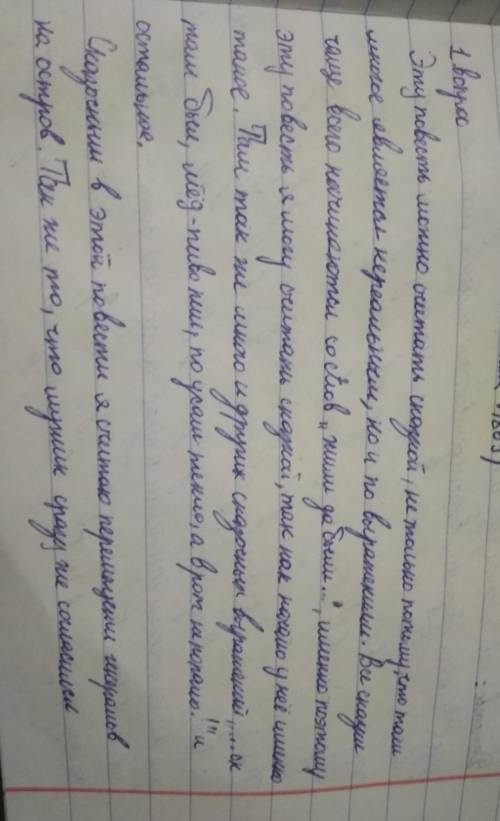 1 вопрос
Эту повесть можно считать сказкой, не только потому, что там
многое является нереальным, но и по выражениям. Все сказки
чаще всего начинаются со слов „жили да были...", именно поэтому
эту повесть я могу считать сказкой, так как начало у неё именно
такое. Там так же много и других сказочных выражений „...он
там был, мёд-пиво пил, по усам текло, а в рот не попало." и
остальное.
Сказочным в этой повести я считаю перемещения генералов
на остров. Так же то, что мужик сразу же согласился